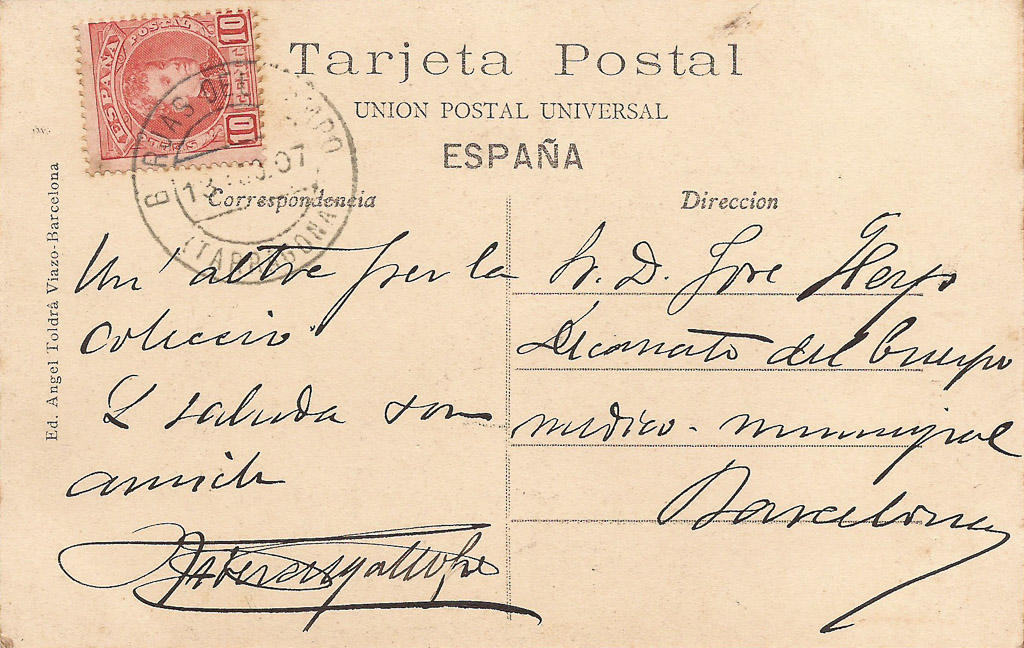 ESPAÑA
POSTAL
10
10
Tarjeta Postal
UNION POSTAL UNIVERSAL
ESPAÑA
BRAS DEL CAMPO
13 AGO.07
(TARRAGONA)
Correspondencia
Direccion
Ed. Angel Toldrá Viazo-Barcelona
Un altre per la
colecció
L saluda son
amich
Sr. D. Jose
Decanato del Cuerpo
medico-municipal
Barcelona